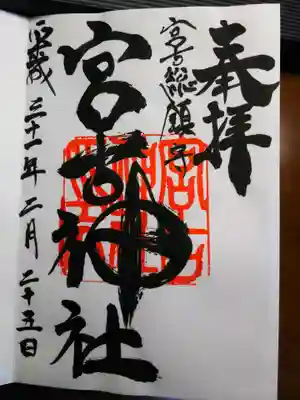 奉拝
宮吉総鎮守
宮吉神社
平成三十一年二月二十五日